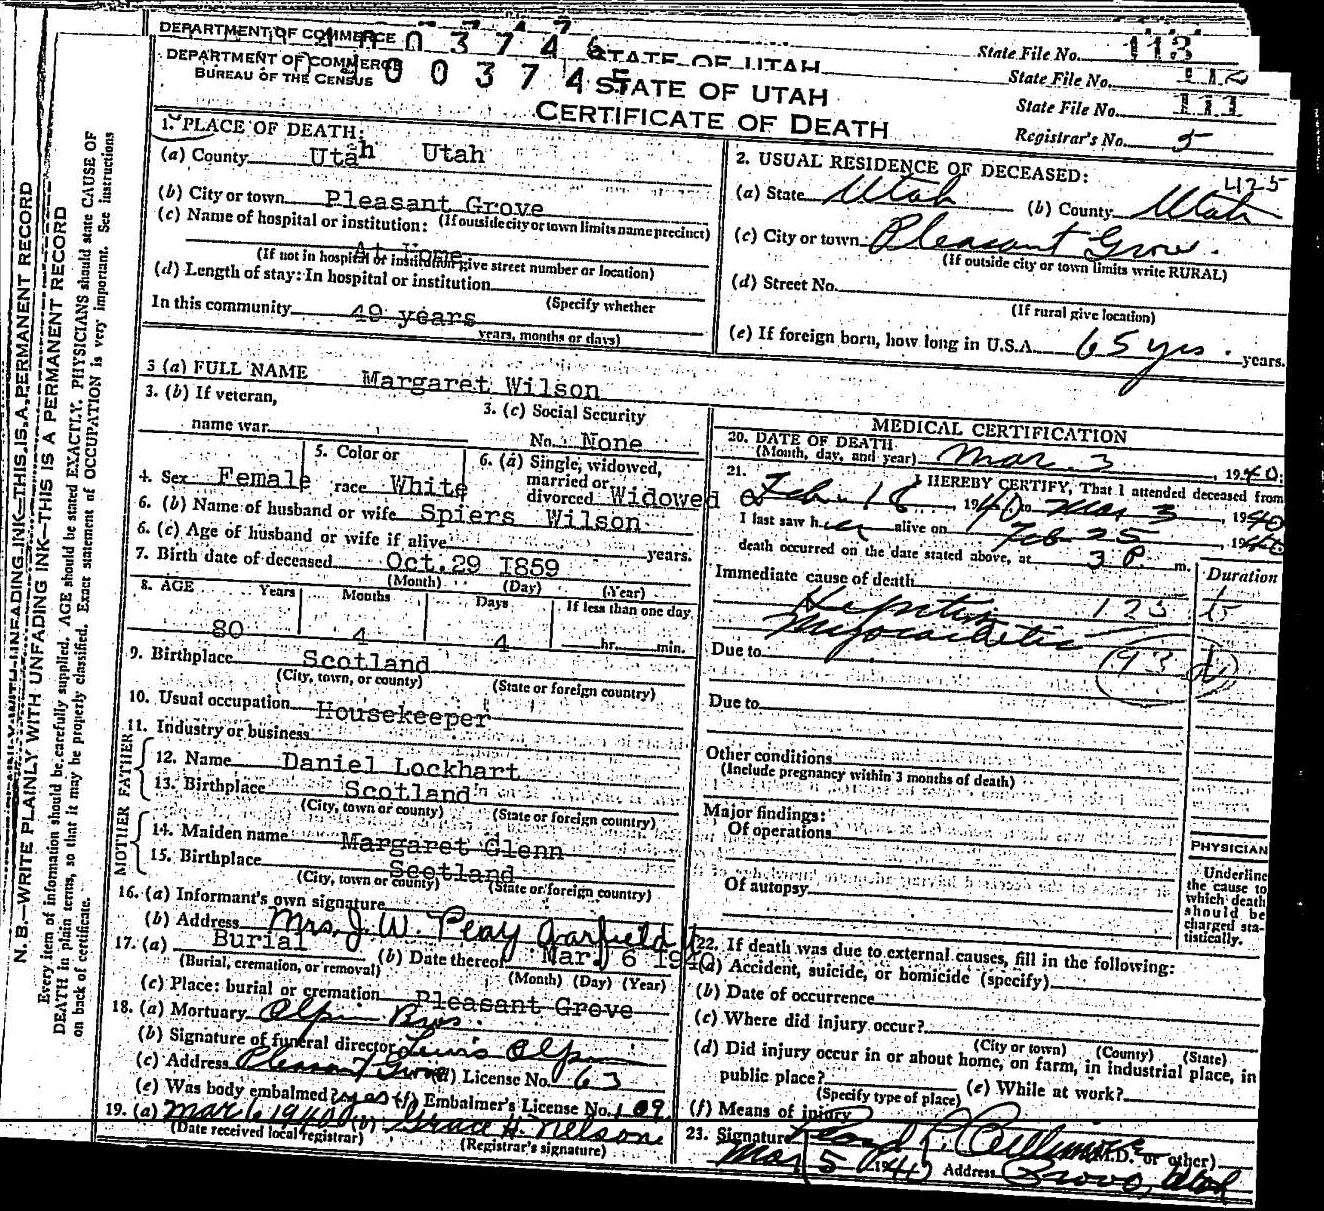 DEPARTMENT OF COMMERCE
STATE OF UTAH
State File No. 113
DEPARTMENT OF COMMERCE
BUREAU OF THE CENSUS
0 0 3 7 4
STATE OF UTAH
State File No.
CERTIFICATE OF DEATH
State File No. 111
Registrar's No. 5
N. B.—WRITE PLAINLY WITH UNFADING INK—THIS IS A PERMANENT RECORD
Every item of information should be carefully supplied. AGE should be stated EXACTLY. PHYSICIANS should state CAUSE OF
DEATH in plain terms, so that it may be properly classified. Exact statement of OCCUPATION is very important. See instructions
on back of certificate.
1. PLACE OF DEATH:
(a) County Utah Utah
(b) City or town Pleasant Grove
(c) Name of hospital or institution: (If outside city or town limits name precinct)
At Home
(If not in hospital or institution give street number or location)
(d) Length of stay: In hospital or institution
(Specify whether
In this community 49 years
years, months or days)
2. USUAL RESIDENCE OF DECEASED:
425
(a) State Utah (b) County Utah
(c) City or town: Pleasant Grove.
(If outside city or town limits write RURAL)
(d) Street No.
(If rural give location)
(e) If foreign born, how long in U.S.A. 65 yrs. years.
3 (a) FULL NAME Margaret Wilson
3. (b) If veteran,
name war
3. (c) Social Security
No. None
4. Sex Female
5. Color or
race White
6. (a) Single, widowed,
married or
divorced Widowed
6. (b) Name of husband or wife Spiers Wilson
6. (c) Age of husband or wife if alive years.
7. Birth date of deceased Oct. 29 1859
(Month) (Day) (Year)
8. AGE Years Months Days If less than one day
80 4 4 hr. min.
9. Birthplace Scotland
(City, town, or county) (State or foreign country)
10. Usual occupation Housekeeper
11. Industry or business
FATHER
12. Name Daniel Lockhart
13. Birthplace Scotland
(City, town or county) (State or foreign country)
MOTHER
14. Maiden name Margaret Glenn
15. Birthplace Scotland
(City, town or county) (State or foreign country)
16. (a) Informant's own signature
(b) Address Mrs. J. W. Peay Garfield Ut
17. (a) Burial (b) Date thereof Mar. 6 1940
(Burial, cremation, or removal) (Month) (Day) (Year)
(c) Place: burial or cremation Pleasant Grove
18. (a) Mortuary Olpin Bros.
(b) Signature of funeral director Lewis Olpin
(c) Address Pleasant Grove (d) License No. 63
(e) Was body embalmed? yes (f) Embalmer's License No. 109
19. (a) Mar 6 1940 (b) Grace H. Nelson
(Date received local registrar) (Registrar's signature)
MEDICAL CERTIFICATION
20. DATE OF DEATH
(Month, day, and year) Mar. 3, 1940
21. I HEREBY CERTIFY, That I attended deceased from
Feb. 18, 1940 to Mar 3, 1940
I last saw her alive on Feb 25, 1940
death occurred on the date stated above, at 3 P. m.
Immediate cause of death
Duration
123
Due to
93 d
Due to
Other conditions
(Include pregnancy within 3 months of death)
Major findings:
Of operations
Of autopsy
PHYSICIAN
Underline
the cause to
which death
should be
charged sta-
tistically.
22. If death was due to external causes, fill in the following:
(a) Accident, suicide, or homicide (specify)
(b) Date of occurrence
(c) Where did injury occur?
(City or town) (County) (State)
(d) Did injury occur in or about home, on farm, in industrial place, in
public place?
(Specify type of place) (e) While at work?
(f) Means of injury
23. Signature Lloyd L. Cullimore (M.D. or other)
Mar 5 1940 Address Provo, Utah